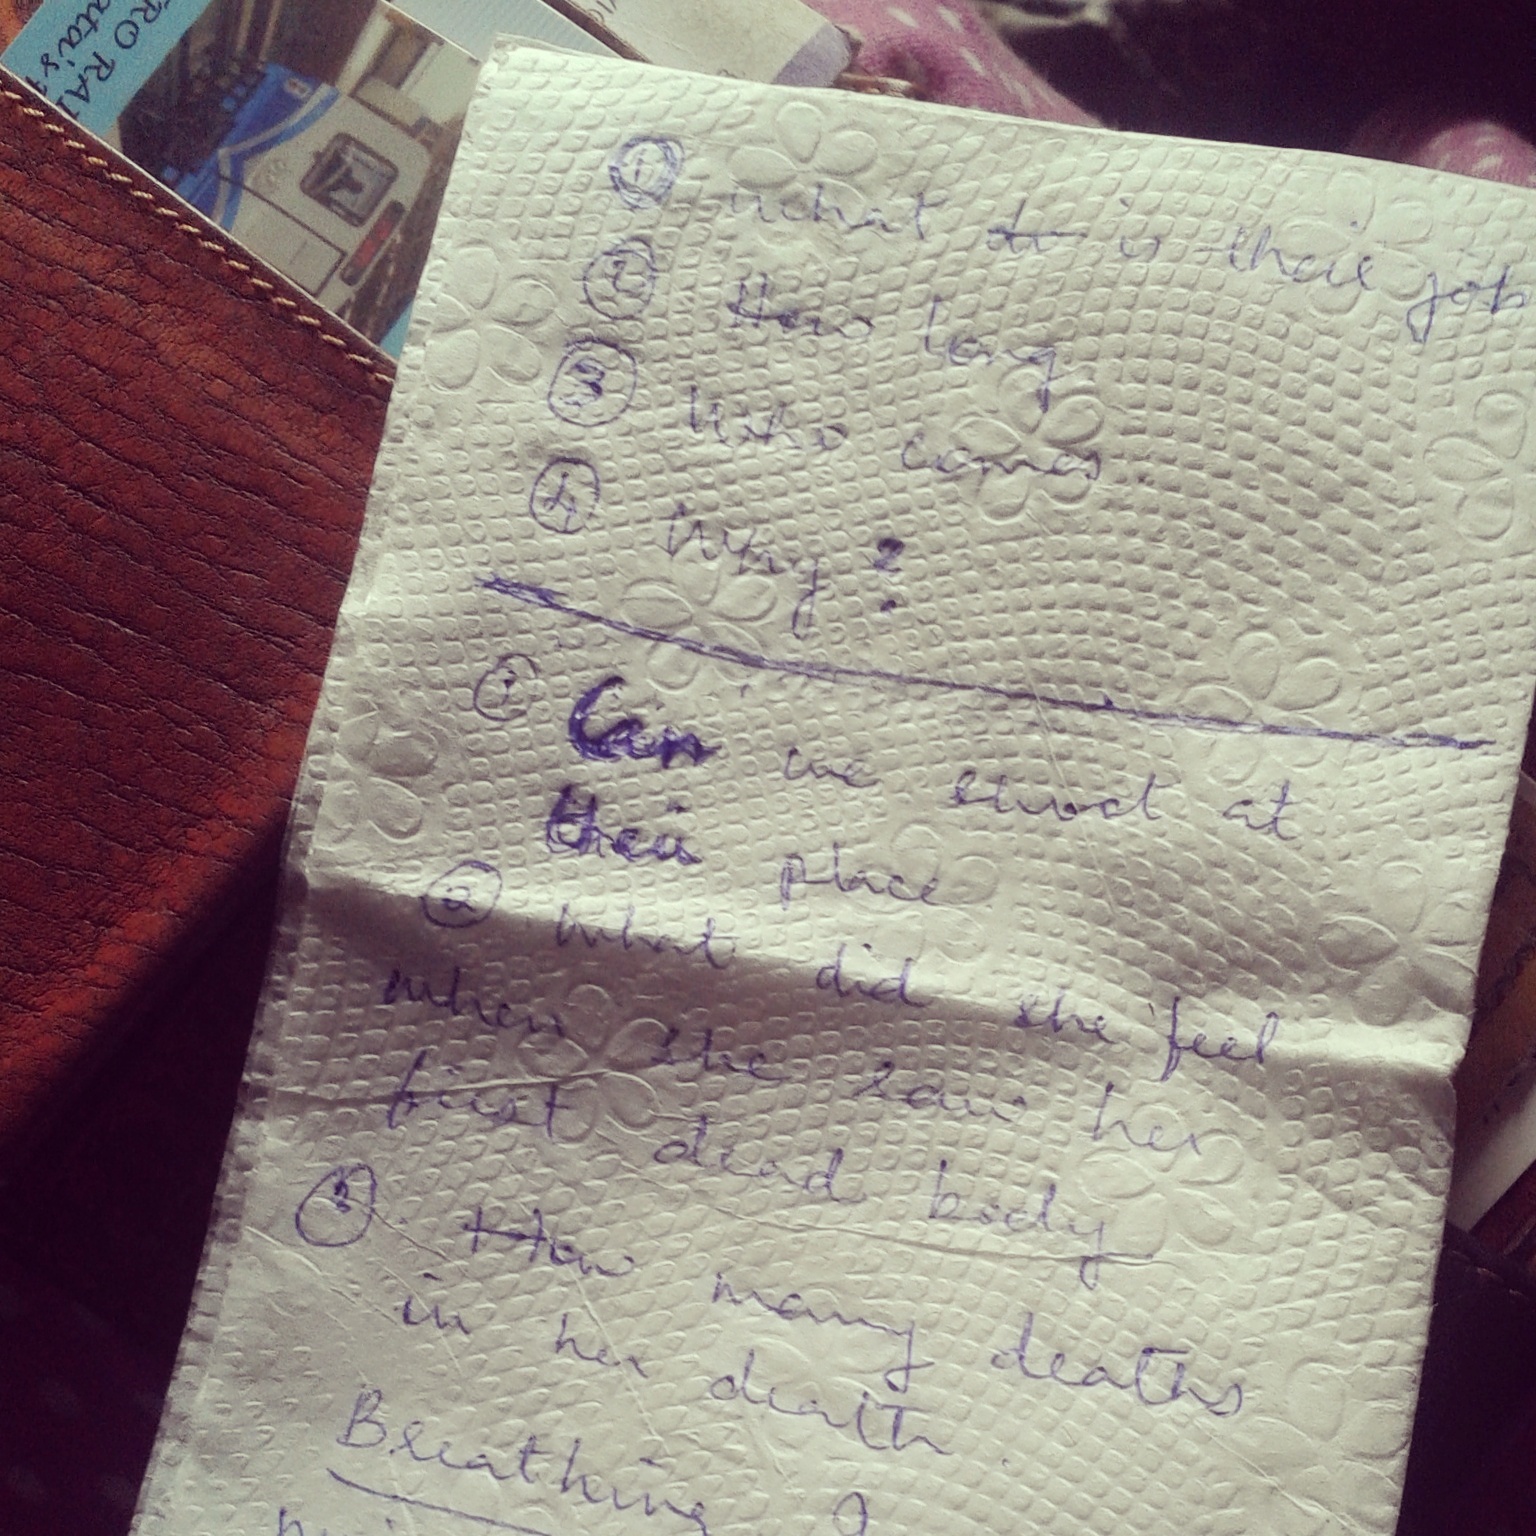 RO RAI
ata's
① What is their job
② How long
③ Who comes
④ Why?
① Can we shoot at
their place
② What did she feel
when she saw her
first dead body
③ How many deaths
in her death.
Breathing